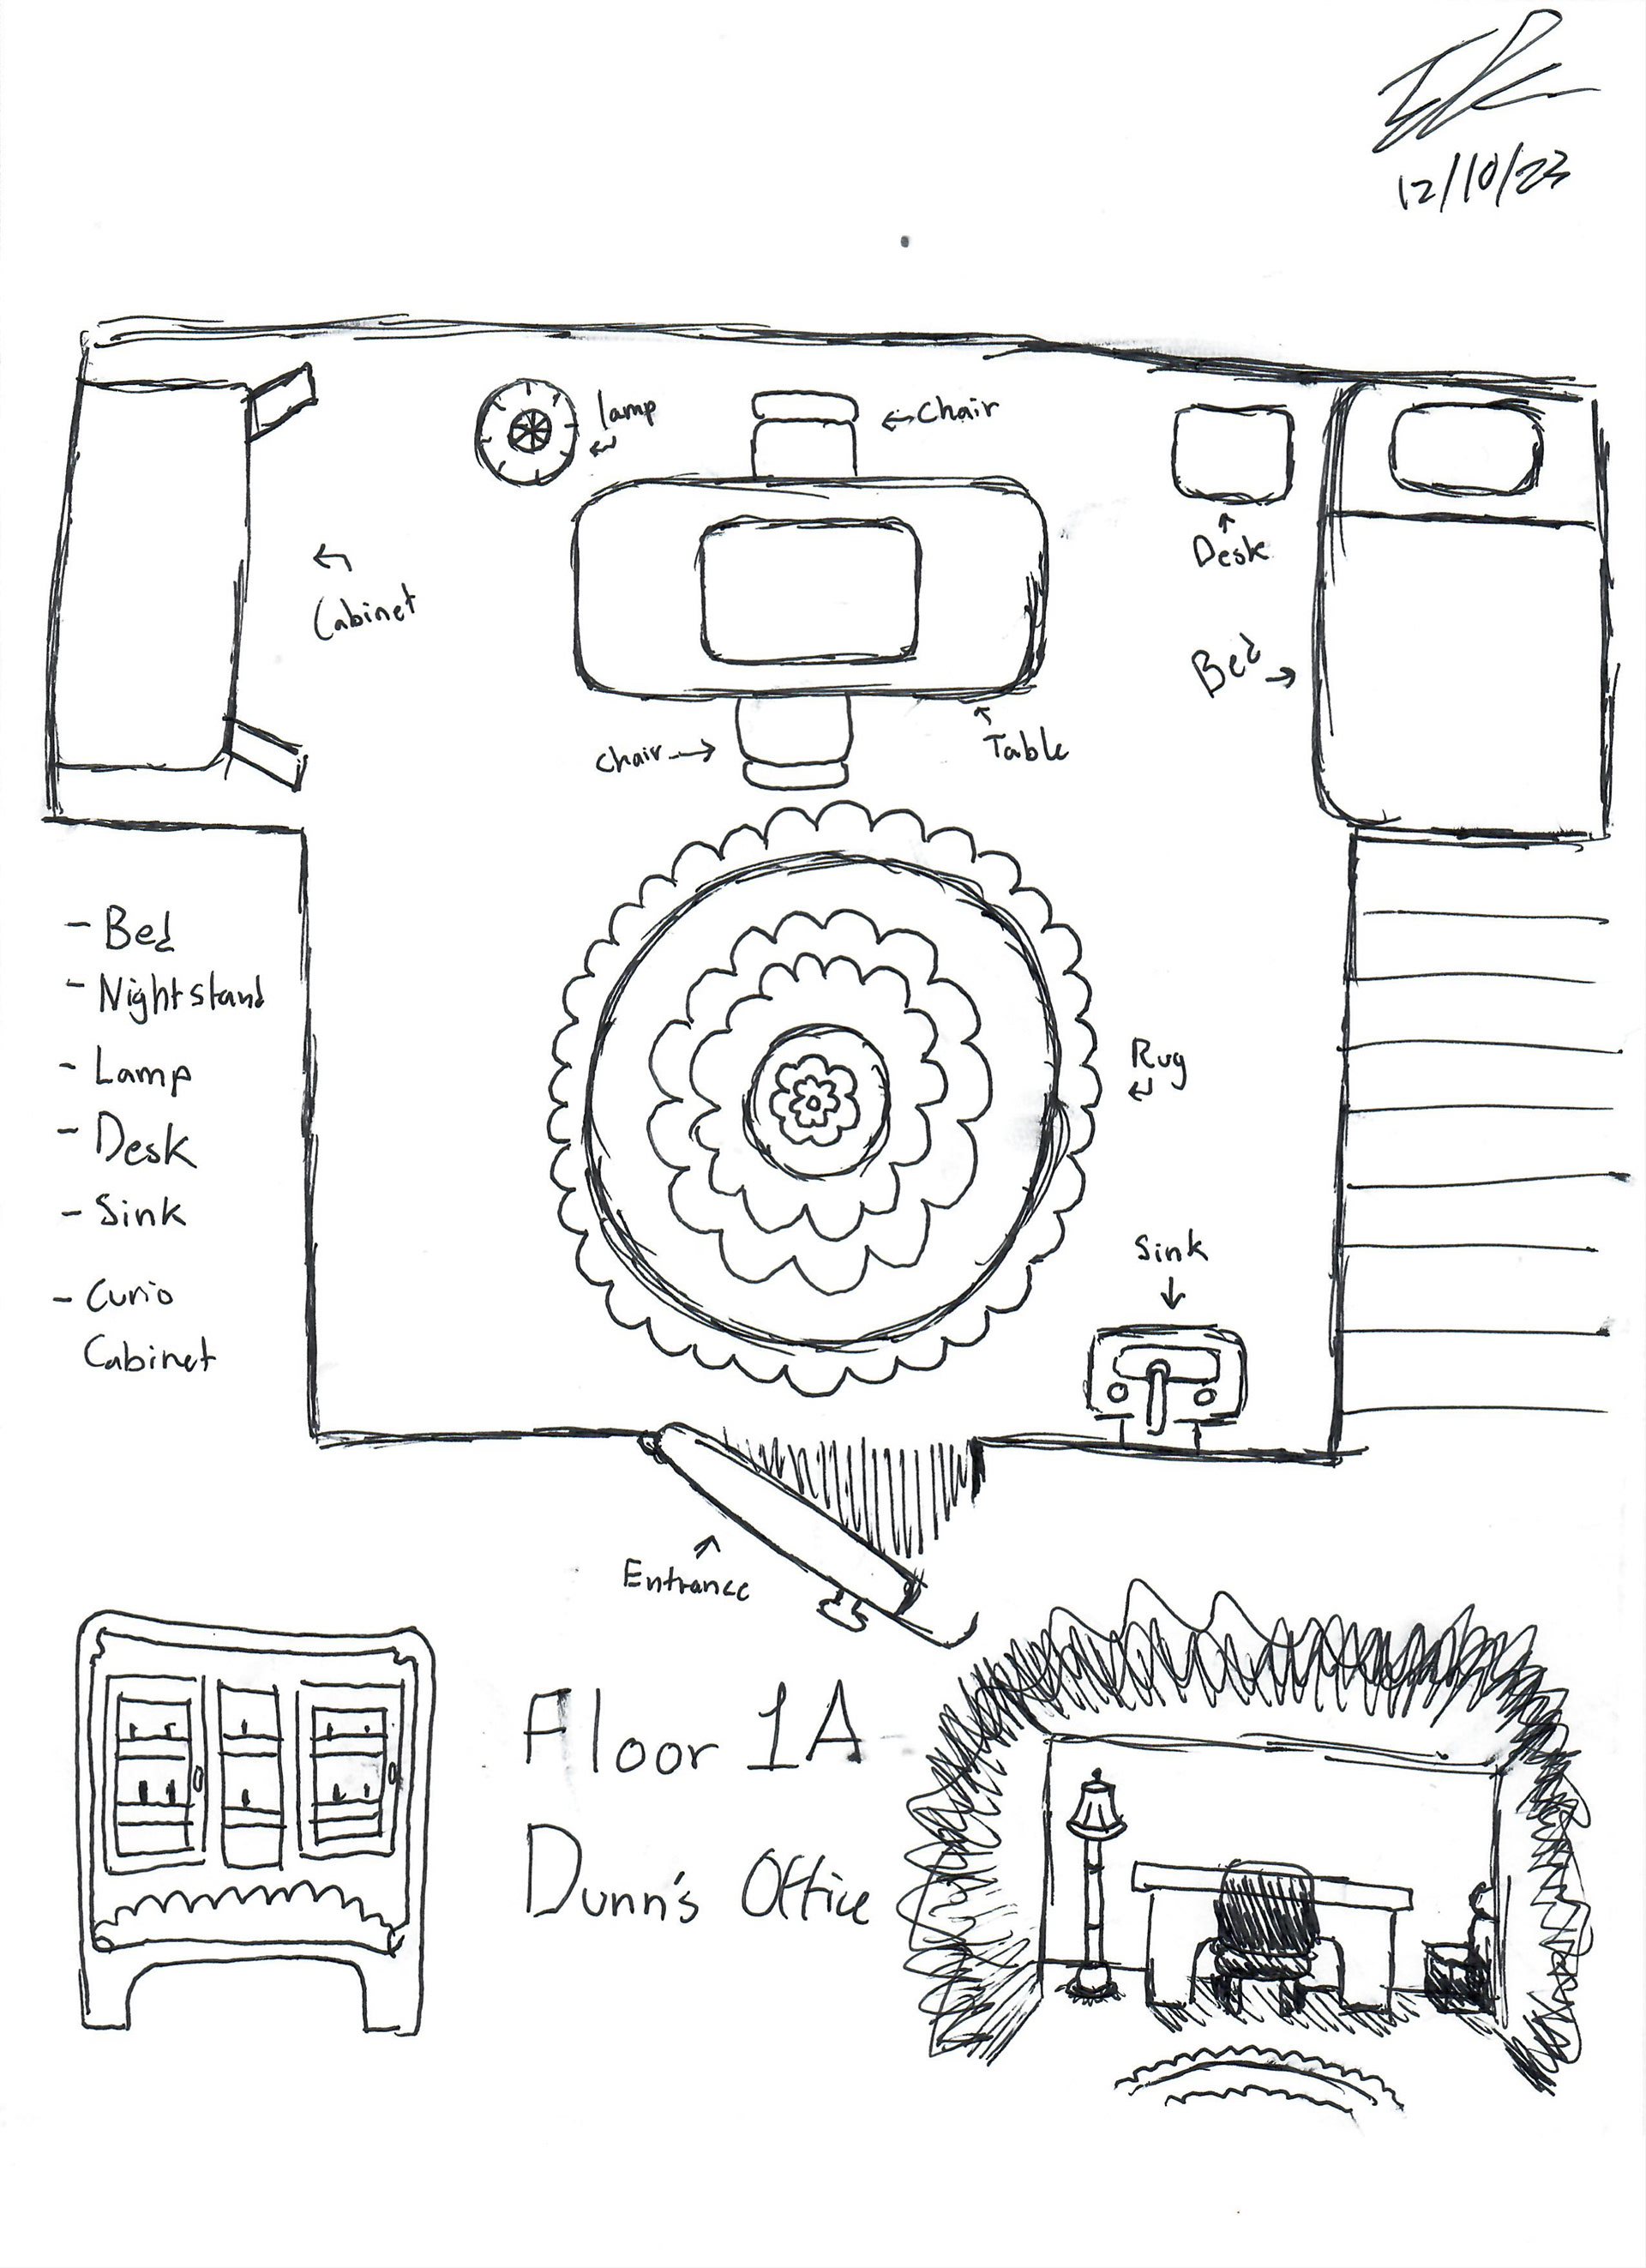 12/10/23
lamp
Chair
Desk
Cabinet
Bed
Chair
Table
- Bed
- Nightstand
- Lamp
- Desk
- Sink
- Curio
Cabinet
Rug
Sink
Entrance
Floor 1A
Dunn's Office